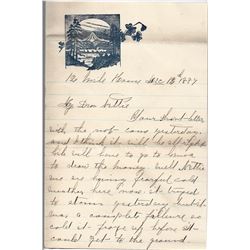 12 Mile House Dec 12th 1897
My Dear Nettie
Your short letter
with the not came yesterday
and I think it will be all right
will have to go to
to draw the money. Well Nettie
we are having fearful cold
weather here now. it tryed
to storm yesterday but it
was a complete failure so
cold it froze up before it
could get to the ground